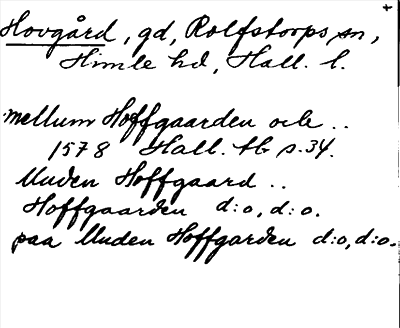 Hovgård, gd, Rolfstorps sn,
Himle hd, Hall. l.
mellum Hoffgaarden och ..
1578 Hall. tb s.34.
Unden Hoffgaard ..
Hoffgaarden d:o, d:o.
paa Unden Hoffgarden d:o, d:o.